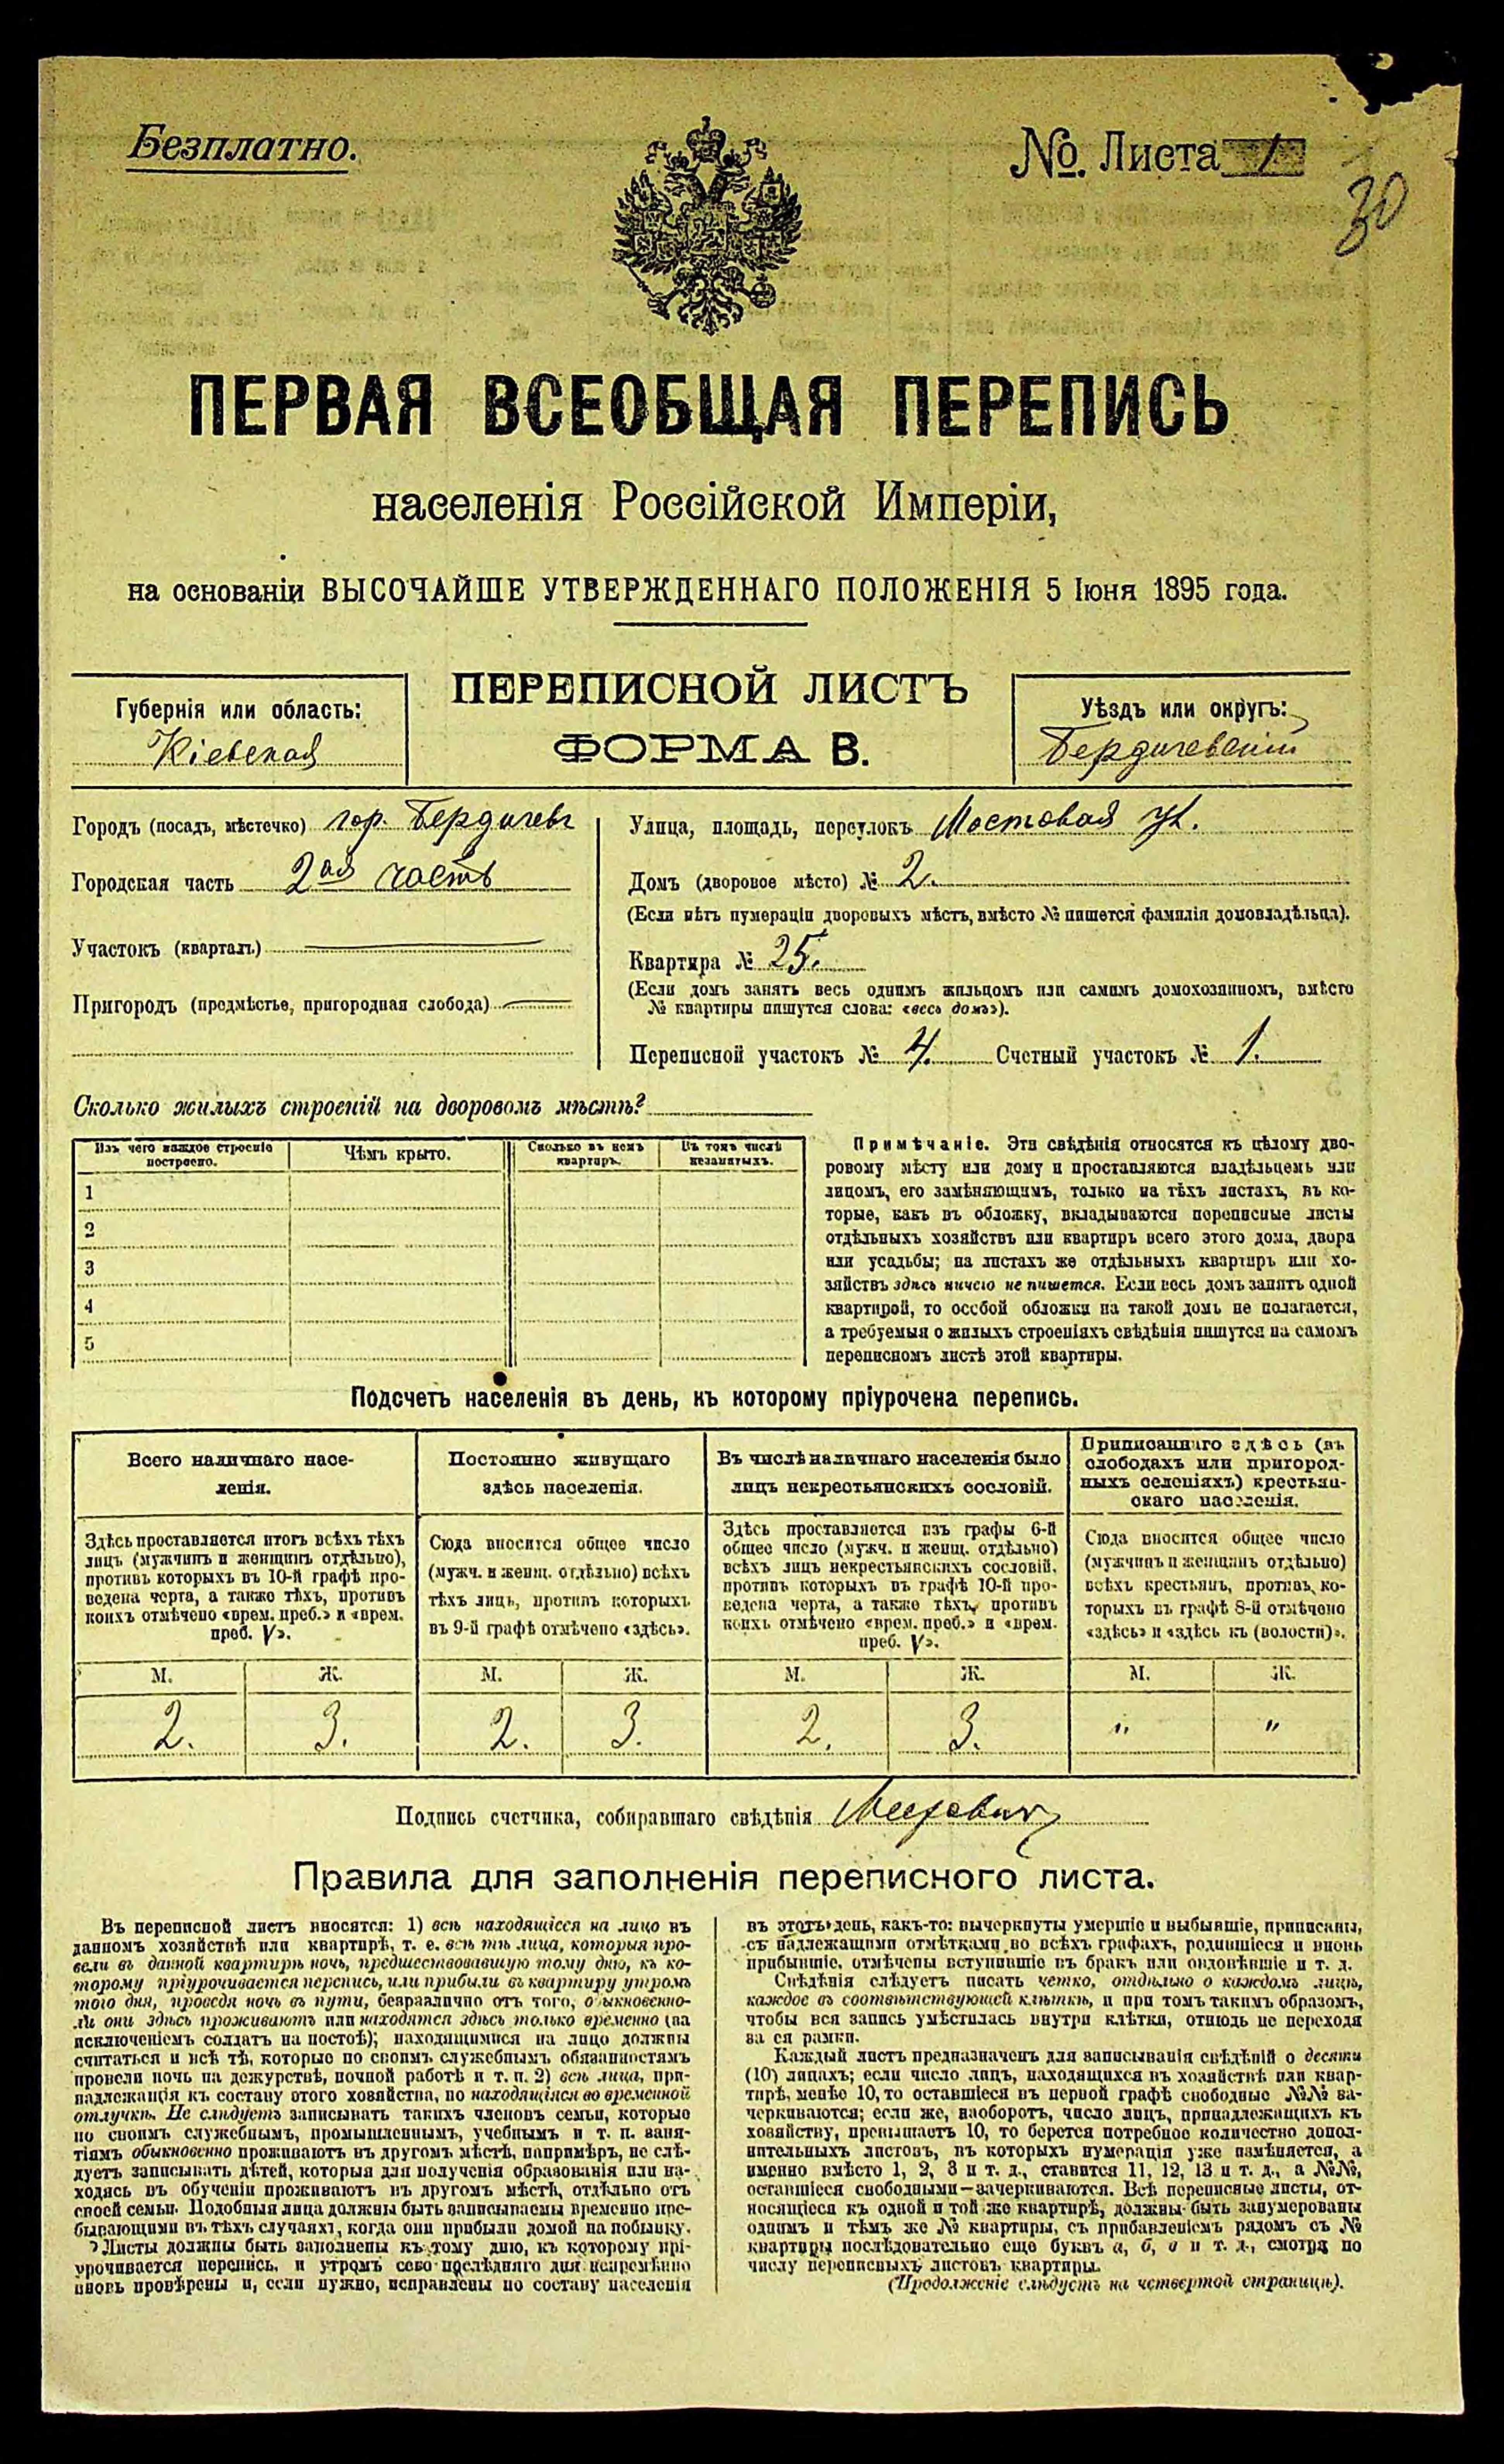 Безплатно.
№. Листа 1
30
ПЕРВАЯ ВСЕОБЩАЯ ПЕРЕПИСЬ
населенія Россійской Имперіи,
на основаніи ВЫСОЧАЙШЕ УТВЕРЖДЕННАГО ПОЛОЖЕНІЯ 5 Іюня 1895 года.
Губернія или область:
Кіевская
ПЕРЕПИСНОЙ ЛИСТЪ
ФОРМА В.
Уѣздъ или округъ:
Бердичевскій
Городъ (посадъ, мѣстечко) гор. Бердичевъ
Городская часть 2ая часть
Участокъ (кварталъ)
Пригородъ (предмѣстье, пригородная слобода)
Улица, площадь, переулокъ Мостовая ул.
Домъ (дворовое мѣсто) № 2.
(Если нѣтъ нумераціи дворовыхъ мѣстъ, вмѣсто № пишется фамилія домовладѣльца).
Квартира № 25.
(Если домъ занятъ весь однимъ жильцомъ или самимъ домохозяиномъ, вмѣсто
№ квартиры пишутся слова: «весь домъ»).
Переписной участокъ № 4. Счетный участокъ № 1.
Сколько жилыхъ строеній на дворовомъ мѣстѣ?
Изъ чего каждое строеніе
построено.
Чѣмъ крыто.
Сколько въ немъ
квартиръ.
Въ томъ числѣ
незанятыхъ.
1
2
3
4
5
Примѣчаніе. Эти свѣдѣнія относятся къ цѣлому дво-
ровому мѣсту или дому и проставляются владѣльцемъ или
лицомъ, его замѣняющимъ, только на тѣхъ листахъ, въ ко-
торые, какъ въ обложку, вкладываются переписные листы
отдѣльныхъ хозяйствъ или квартиръ всего этого дома, двора
или усадьбы; на листахъ же отдѣльныхъ квартиръ или хо-
зяйствъ здѣсь ничего не пишется. Если весь домъ занятъ одной
квартирой, то особой обложки на такой домъ не полагается,
а требуемыя о жилыхъ строеніяхъ свѣдѣнія пишутся на самомъ
переписномъ листѣ этой квартиры.
Подсчетъ населенія въ день, къ которому пріурочена перепись.
Всего наличнаго насе-
ленія.
Постоянно живущаго
здѣсь населенія.
Въ числѣ наличнаго населенія было
лицъ некрестьянскихъ сословій.
Приписаннаго здѣсь (въ
слободахъ или пригород-
ныхъ селеніяхъ) крестьян-
скаго населенія.
Здѣсь проставляется итогъ всѣхъ тѣхъ
лицъ (мужчинъ и женщинъ отдѣльно),
противъ которыхъ въ 10-й графѣ про-
ведена черта, а также тѣхъ, противъ
коихъ отмѣчено «врем. преб.» и «врем.
преб. V».
Сюда вносится общее число
(мужч. и женщ. отдѣльно) всѣхъ
тѣхъ лицъ, противъ которыхъ
въ 9-й графѣ отмѣчено «здѣсь».
Здѣсь проставляется изъ графы 6-й
общее число (мужч. и женщ. отдѣльно)
всѣхъ лицъ некрестьянскихъ сословій,
противъ которыхъ въ графѣ 10-й про-
ведена черта, а также тѣхъ, противъ
коихъ отмѣчено «врем. преб.» и «врем.
преб. V».
Сюда вносится общее число
(мужчинъ и женщинъ отдѣльно)
всѣхъ крестьянъ, противъ ко-
торыхъ въ графѣ 8-й отмѣчено
«здѣсь» и «здѣсь къ (волости)».
М. Ж. М. Ж. М. Ж. М. Ж.
2. 3. 2. 3. 2. 3. " "
Подпись счетчика, собиравшаго свѣдѣнія
Правила для заполненія переписного листа.
Въ переписной листъ вносятся: 1) всѣ находящіеся на лицо въ
данномъ хозяйствѣ или квартирѣ, т. е. всѣ тѣ лица, которыя про-
вели въ данной квартирѣ ночь, предшествовавшую тому дню, къ ко-
торому пріурочивается перепись, или прибыли въ квартиру утромъ
того дня, проведя ночь въ пути, безразлично отъ того, обыкновенно-
ли они здѣсь проживаютъ или находятся здѣсь только временно (за
исключеніемъ солдатъ на постоѣ); находящимися на лицо должны
считаться и всѣ тѣ, которые по своимъ служебнымъ обязанностямъ
провели ночь на дежурствѣ, ночной работѣ и т. п. 2) всѣ лица, при-
надлежащія къ составу этого хозяйства, но находящіяся во временной
отлучкѣ. Не слѣдуетъ записывать такихъ членовъ семьи, которые
по своимъ служебнымъ, промышленнымъ, учебнымъ и т. п. заня-
тіямъ обыкновенно проживаютъ въ другомъ мѣстѣ, напримѣръ, не слѣ-
дуетъ записывать дѣтей, которыя для полученія образованія или на-
ходясь въ обученіи проживаютъ въ другомъ мѣстѣ, отдѣльно отъ
своей семьи. Подобныя лица должны быть записываемы временно пре-
бывающими въ тѣхъ случаяхъ, когда они прибыли домой на побывку.
Листы должны быть заполнены къ тому дню, къ которому прі-
урочивается перепись, и утромъ сего послѣдняго дня непремѣнно
вновь провѣрены и, если нужно, исправлены по составу населенія
въ этотъ день, какъ-то: вычеркнуты умершіе и выбывшіе, приписаны,
съ надлежащими отмѣтками во всѣхъ графахъ, родившіеся и вновь
прибывшіе, отмѣчены вступившіе въ бракъ или овдовѣвшіе и т. д.
Свѣдѣнія слѣдуетъ писать четко, отдѣльно о каждомъ лицѣ,
каждое въ соотвѣтствующей клѣткѣ, и при томъ такимъ образомъ,
чтобы вся запись умѣстилась внутри клѣтки, отнюдь не переходя
за ея рамки.
Каждый листъ предназначенъ для записыванія свѣдѣній о десяти
(10) лицахъ; если число лицъ, находящихся въ хозяйствѣ или квар-
тирѣ, менѣе 10, то оставшіеся въ первой графѣ свободные №№ за-
черкиваются; если же, наоборотъ, число лицъ, принадлежащихъ къ
хозяйству, превышаетъ 10, то берется потребное количество допол-
нительныхъ листовъ, въ которыхъ нумерація уже измѣняется, а
именно вмѣсто 1, 2, 3 и т. д., ставится 11, 12, 13 и т. д., а №№,
оставшіеся свободными—зачеркиваются. Всѣ переписные листы, от-
носящіеся къ одной и той же квартирѣ, должны быть занумерованы
однимъ и тѣмъ же № квартиры, съ прибавленіемъ рядомъ съ №
квартиры послѣдовательно еще буквъ а, б, в и т. д., смотря по
числу переписныхъ листовъ квартиры.
(Продолженіе слѣдуетъ на четвертой страницѣ).